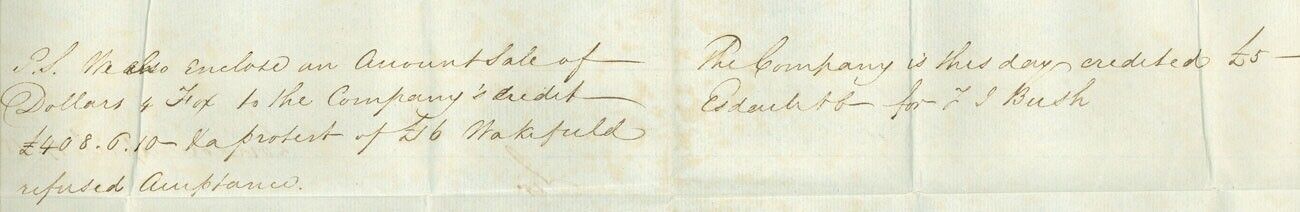 P.S. We also enclose an Account Sale of
Dollars & Fox to the Company's credit
£408.6.10 — & a protest of £16 Wakefield
refused Acceptance.
The Company is this day credited £5 —
Esdaile & Co — for T J Bush